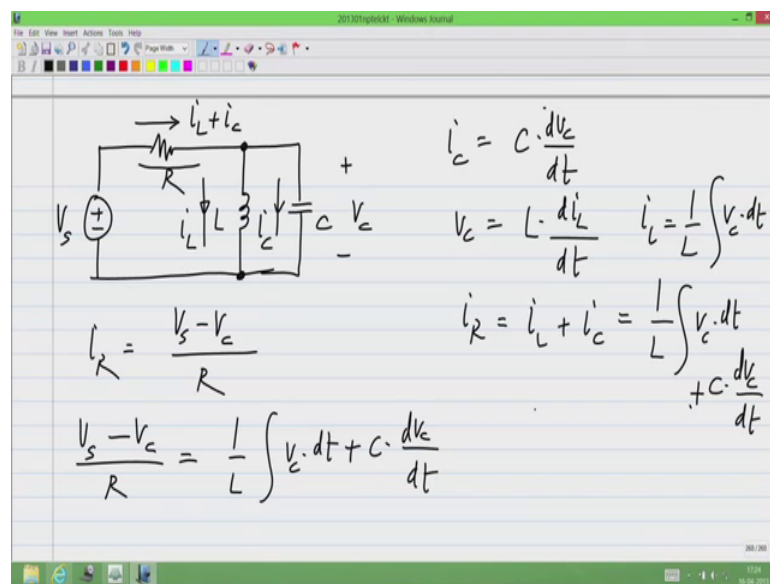 201301nptelckt - Windows Journal
File Edit View Insert Actions Tools Help
Page Width
B I
→ i_L + i_c
R
V_s
+
−
i_L
L
i_c
C
+
V_c
−
i_c = C · dv_c/dt
v_c = L · di_L/dt
i_L = 1/L ∫ v_c · dt
i_R = (V_s − V_c)/R
i_R = i_L + i_c = 1/L ∫ v_c · dt
+ C · dv_c/dt
(V_s − V_c)/R = 1/L ∫ v_c · dt + C · dv_c/dt
260/260
17:24